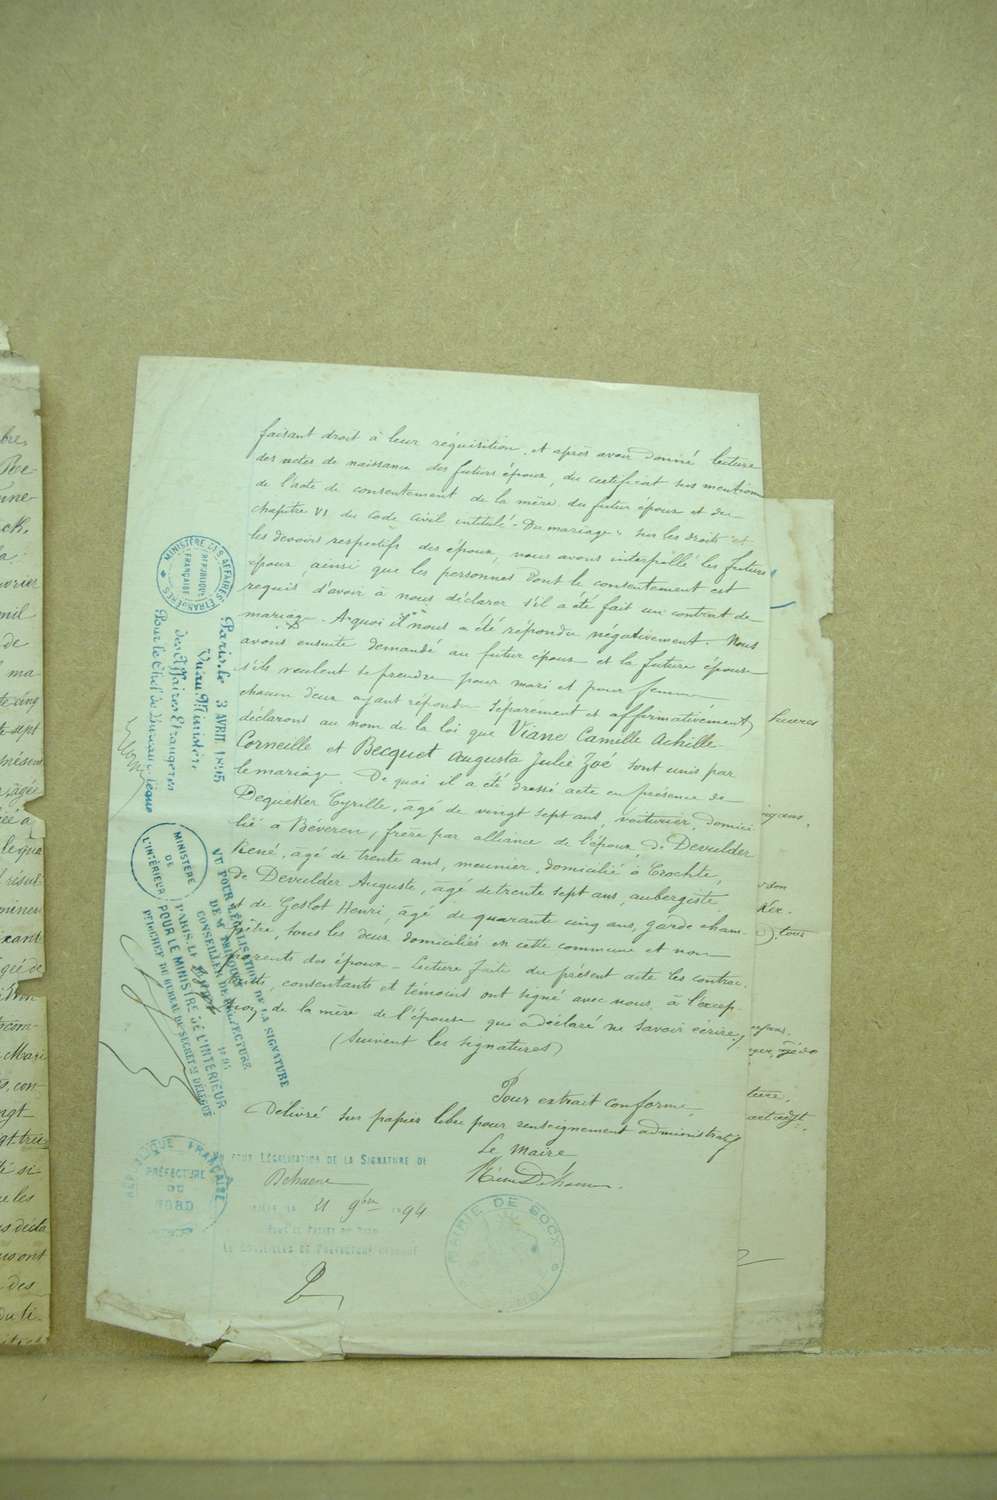 faisant droit à leur réquisition, et après avoir donné lecture
des actes de naissance des futurs époux, du certificat sus mentionné
de l'acte de consentement de la mère du futur époux et du
chapitre VI du Code Civil intitulé "Du mariage" sur les droits et
les devoirs respectifs des époux, nous avons interpellé les futurs
époux, ainsi que les personnes dont le consentement est
requis d'avoir à nous déclarer s'il a été fait un contrat de
mariage. A quoi il nous a été répondu négativement. Nous
avons ensuite demandé au futur époux et la future épouse
s'ils veulent se prendre pour mari et pour femme
chacun deux ayant répondu séparément et affirmativement,
déclarons au nom de la loi que Viane Camille Achille
Corneille et Becquet Augusta Julie Zoé sont unis par
le mariage. De quoi il a été dressé acte en présence de
Dequeker Cyrille, âgé de vingt sept ans, voiturier, domici
lié a Béveren, frère par alliance de l'époux, de Devulder
René, agé de trente ans, meunier, domicilié à Crochte,
de Devulder Auguste, agé de trente sept ans, aubergiste
et de Geslot Henri, âgé de quarante cinq ans, garde cham-
pêtre, tous les deux domiciliés en cette commune et non
parents des époux - Lecture faite du présent acte les contrac
tants, consentants et témoins ont signé avec nous, à l'excep
tion de la mère de l'épouse qui a déclaré ne savoir écrire,
(Suivent les signatures)
Pour extrait conforme
Délivré sur papier libre pour renseignement administratif
Le Maire
POUR LÉGALISATION DE LA SIGNATURE DE
Behaene
21 9bre 1894
LE CONSEILLER DE PRÉFECTURE DÉLÉGUÉ
MAIRIE DE SOCX
RÉPUBLIQUE FRANÇAISE
PRÉFECTURE
DU
NORD
MINISTÈRE DES AFFAIRES ÉTRANGÈRES
RÉPUBLIQUE
FRANÇAISE
Paris, le 3 AVRIL 1895
Vu au Ministère
des Affaires Etrangères
Pour le Chef de Bureau délégué
MINISTÈRE
DE
L'INTÉRIEUR
VU POUR LÉGALISATION DE LA SIGNATURE
DE Mr
CONSEILLER DE PRÉFECTURE
PARIS, LE
POUR LE MINISTRE DE L'INTÉRIEUR
heures